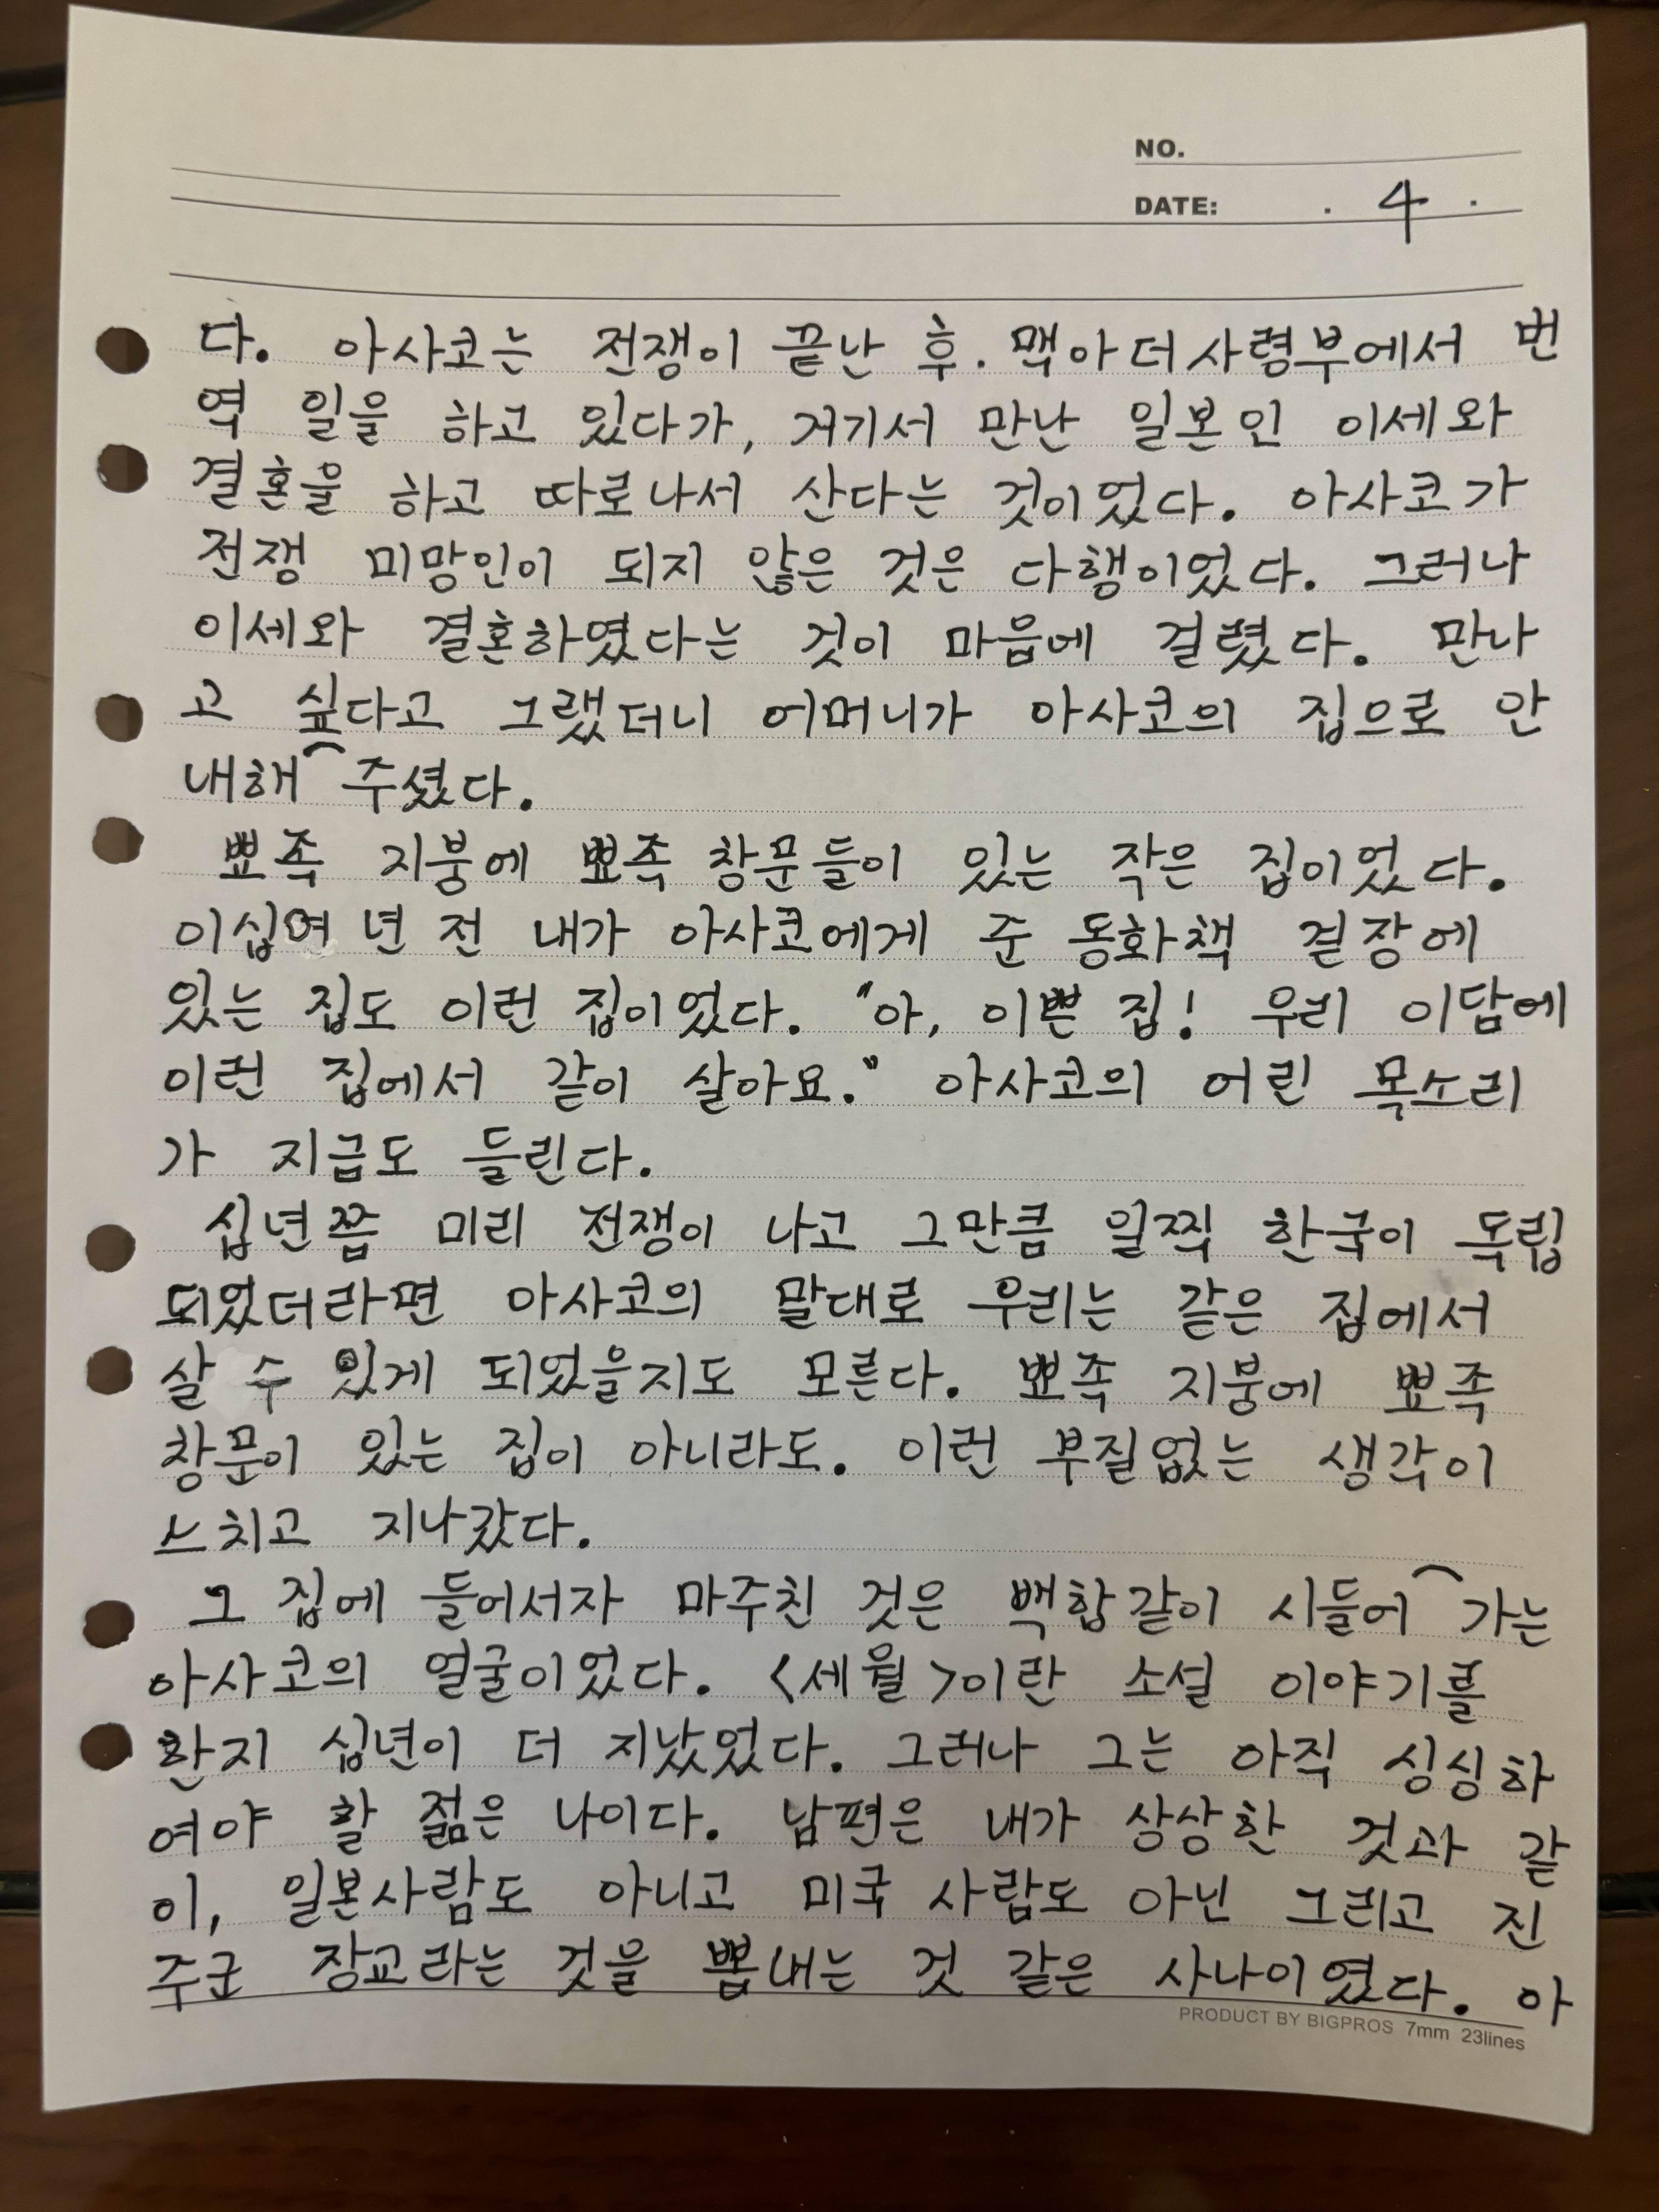 NO.
DATE: . 4 .
다. 아사코는 전쟁이 끝난 후. 맥아더사령부에서 번
역 일을 하고 있다가, 거기서 만난 일본인 이세와
결혼을 하고 따로나서 산다는 것이었다. 아사코가
전쟁 미망인이 되지 않은 것은 다행이었다. 그러나
이세와 결혼하였다는 것이 마음에 걸렸다. 만나
고 싶다고 그랬더니 어머니가 아사코의 집으로 안
내해⌒주셨다.
뾰족 지붕에 뾰족 창문들이 있는 작은 집이었다.
이십여 년 전 내가 아사코에게 준 동화책 겉장에
있는 집도 이런 집이었다. "아, 이쁜 집! 우리 이담에
이런 집에서 같이 살아요." 아사코의 어린 목소리
가 지금도 들린다.
십년쯤 미리 전쟁이 나고 그만큼 일찍 한국이 독립
되었더라면 아사코의 말대로 우리는 같은 집에서
살 수 있게 되었을지도 모른다. 뾰족 지붕에 뾰족
창문이 있는 집이 아니라도. 이런 부질없는 생각이
스치고 지나갔다.
그 집에 들어서자 마주친 것은 백합같이 시들어⌒가는
아사코의 얼굴이었다. <세월>이란 소설 이야기를
한지 십년이 더 지났었다. 그러나 그는 아직 싱싱하
여야 할 젊은 나이다. 남편은 내가 상상한 것과 같
이, 일본사람도 아니고 미국 사람도 아닌 그리고 진
주군 장교라는 것을 뽐내는 것 같은 사나이였다. 아
PRODUCT BY BIGPROS 7mm 23lines